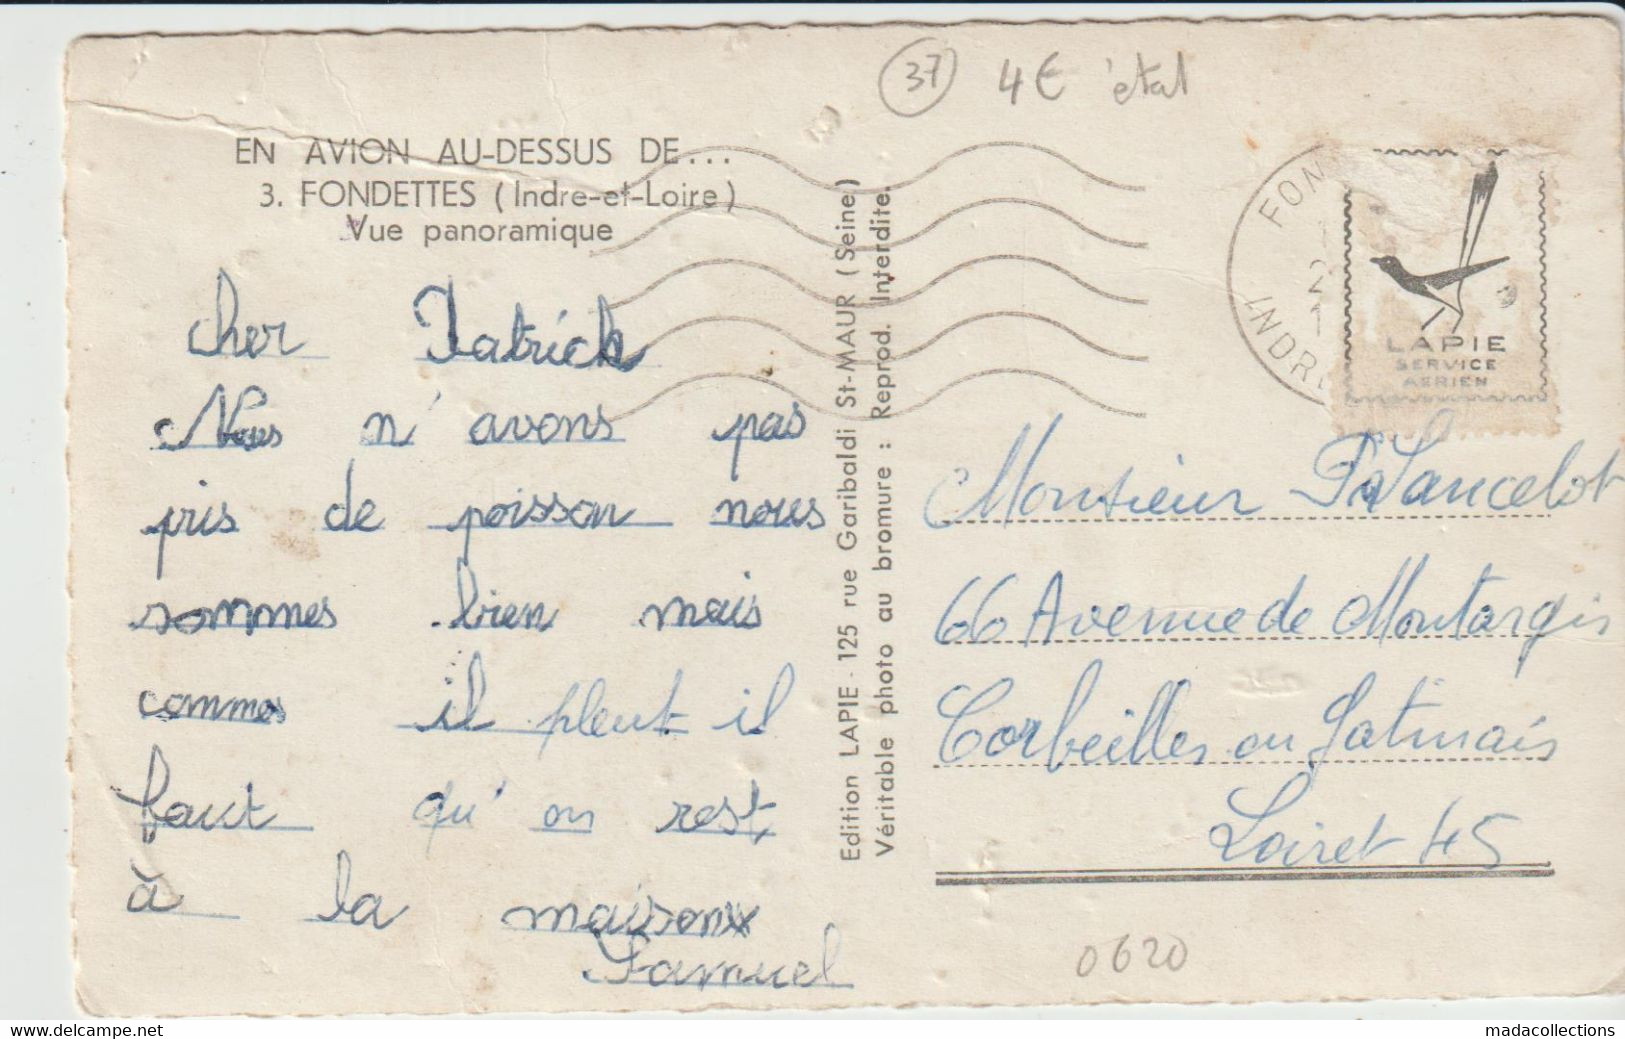 37 4€ état
EN AVION AU-DESSUS DE...
3. FONDETTES (Indre-et-Loire)
Vue panoramique
cher Patrick
Nous n'avons pas
pris de poisson nous
sommes bien mais
commes il pleut il
faut qu'on rest
à la maison
Samuel
Edition LAPIE - 125 rue Garibaldi St-MAUR (Seine)
Véritable photo au bromure : Reprod. Interdite.
FON
2
1
INDRE
LAPIE
SERVICE
AERIEN
Monsieur Lancelot
66 Avenue de Montargis
Corbeilles en Gatinais
Loiret 45
0620
www.delcampe.net
madacollections